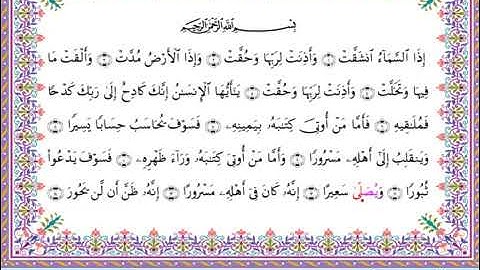 بِسْمِ اللَّهِ الرَّحْمَٰنِ الرَّحِيمِ
إِذَا ٱلسَّمَآءُ ٱنشَقَّتْ ۝ وَأَذِنَتْ لِرَبِّهَا وَحُقَّتْ ۝ وَإِذَا ٱلْأَرْضُ مُدَّتْ ۝ وَأَلْقَتْ مَا
فِيهَا وَتَخَلَّتْ ۝ وَأَذِنَتْ لِرَبِّهَا وَحُقَّتْ ۝ يَٰٓأَيُّهَا ٱلْإِنسَٰنُ إِنَّكَ كَادِحٌ إِلَىٰ رَبِّكَ كَدْحًا
فَمُلَٰقِيهِ ۝ فَأَمَّا مَنْ أُوتِىَ كِتَٰبَهُۥ بِيَمِينِهِۦ ۝ فَسَوْفَ يُحَاسَبُ حِسَابًا يَسِيرًا ۝
وَيَنقَلِبُ إِلَىٰٓ أَهْلِهِۦ مَسْرُورًا ۝ وَأَمَّا مَنْ أُوتِىَ كِتَٰبَهُۥ وَرَآءَ ظَهْرِهِۦ ۝ فَسَوْفَ يَدْعُوا۟
ثُبُورًا ۝ وَيَصْلَىٰ سَعِيرًا ۝ إِنَّهُۥ كَانَ فِىٓ أَهْلِهِۦ مَسْرُورًا ۝ إِنَّهُۥ ظَنَّ أَن لَّن يَحُورَ ۝